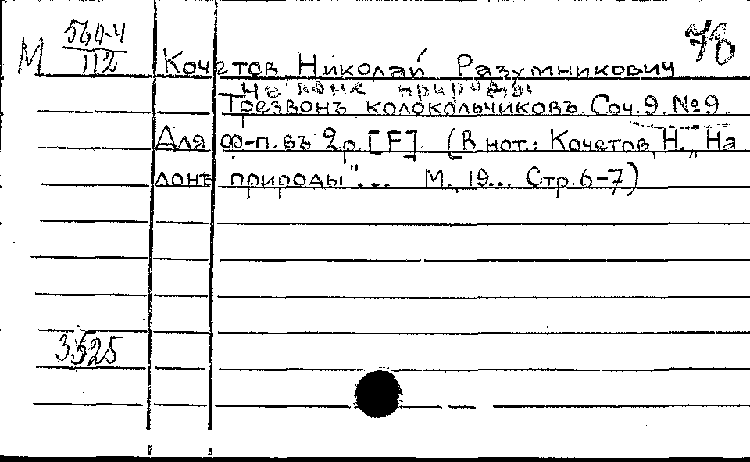 М 560-4/112
78
Кочетов Николай Разумникович
На лоне природы
Трезвонъ колокольчиковъ. Соч.9. №9
Для ф-п. въ 2р. [F]. (В нот.: Кочетов, Н. „На
лонѣ природы"... М., 19... Стр. 6-7)
3525